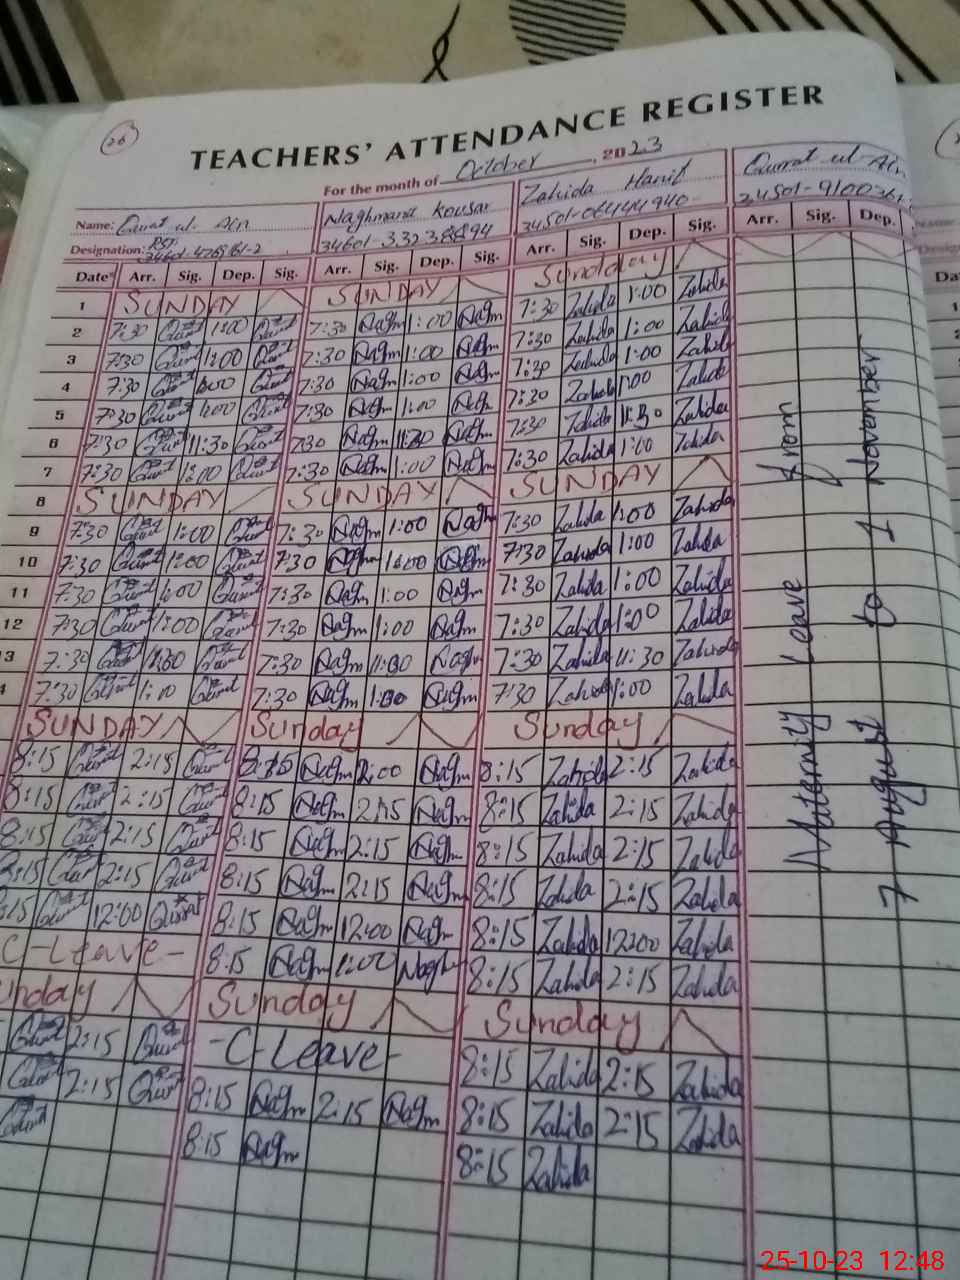 26
TEACHERS' ATTENDANCE REGISTER
For the month of October, 2023
Name: Qurat ul. Ain Naghmana Kousar Zahida Hanif Qurrat ul-Ain
Designation: PST
Date Arr. Sig. Dep. Sig. Arr. Sig. Dep. Sig. Arr. Sig. Dep. Sig. Arr. Sig. Dep.
1 SUNDAY SUNDAY Sunday
2 7:30 Qurat 1:00 Qurat 7:30 Nagm 1:00 Nagm 7:30 Zahida 1:00 Zahida
3 7:30 Qurat 1:00 Qurat 7:30 Nagm 1:00 Nagm 7:30 Zahida 1:00 Zahida
4 7:30 Qurat 1:00 Qurat 7:30 Nagm 1:00 Nagm 7:30 Zahida 1:00 Zahida
5 7:30 Qurat 1:00 Qurat 7:30 Nagm 1:00 Nagm 7:30 Zahida 1:00 Zahida
6 7:30 Qurat 11:30 Qurat 7:30 Nagm 11:30 Nagm 7:30 Zahida 11:30 Zahida
7 7:30 Qurat 1:00 Qurat 7:30 Nagm 1:00 Nagm 7:30 Zahida 1:00 Zahida
8 SUNDAY SUNDAY SUNDAY
9 7:30 Qurat 1:00 Qurat 7:30 Nagm 1:00 Nagm 7:30 Zahida 1:00 Zahida
10 7:30 Qurat 1:00 Qurat 7:30 Nagm 1:00 Nagm 7:30 Zahida 1:00 Zahida
11 7:30 Qurat 1:00 Qurat 7:30 Nagm 1:00 Nagm 7:30 Zahida 1:00 Zahida
12 7:30 Qurat 1:00 Qurat 7:30 Nagm 1:00 Nagm 7:30 Zahida 1:00 Zahida
3 7:30 Qurat 11:30 Qurat 7:30 Nagm 11:30 Nagm 7:30 Zahida 11:30 Zahida
7:30 Qurat 1:00 Qurat 7:30 Nagm 1:00 Nagm 7:30 Zahida 1:00 Zahida
SUNDAY Sunday Sunday
8:15 Qurat 2:15 Qurat 8:15 Nagm 2:00 Nagm 8:15 Zahida 2:15 Zahida
8:15 Qurat 2:15 Qurat 8:15 Nagm 2:15 Nagm 8:15 Zahida 2:15 Zahida
8:15 Qurat 2:15 Qurat 8:15 Nagm 2:15 Nagm 8:15 Zahida 2:15 Zahida
8:15 Qurat 2:15 Qurat 8:15 Nagm 2:15 Nagm 8:15 Zahida 2:15 Zahida
:15 Qurat 12:00 Qurat 8:15 Nagm 12:00 Nagm 8:15 Zahida 12:00 Zahida
C-Leave- 8:15 Nagm 1:00 Nagm 8:15 Zahida 2:15 Zahida
unday Sunday Sunday
Qurat 2:15 Qurat -C-Leave- 8:15 Zahida 2:15 Zahida
Qurat 2:15 Qurat 8:15 Nagm 2:15 Nagm 8:15 Zahida 2:15 Zahida
Qurat 8:15 Nagm 8:15 Zahida
Maternity Leave from
7 August to 1 November
25-10-23 12:48